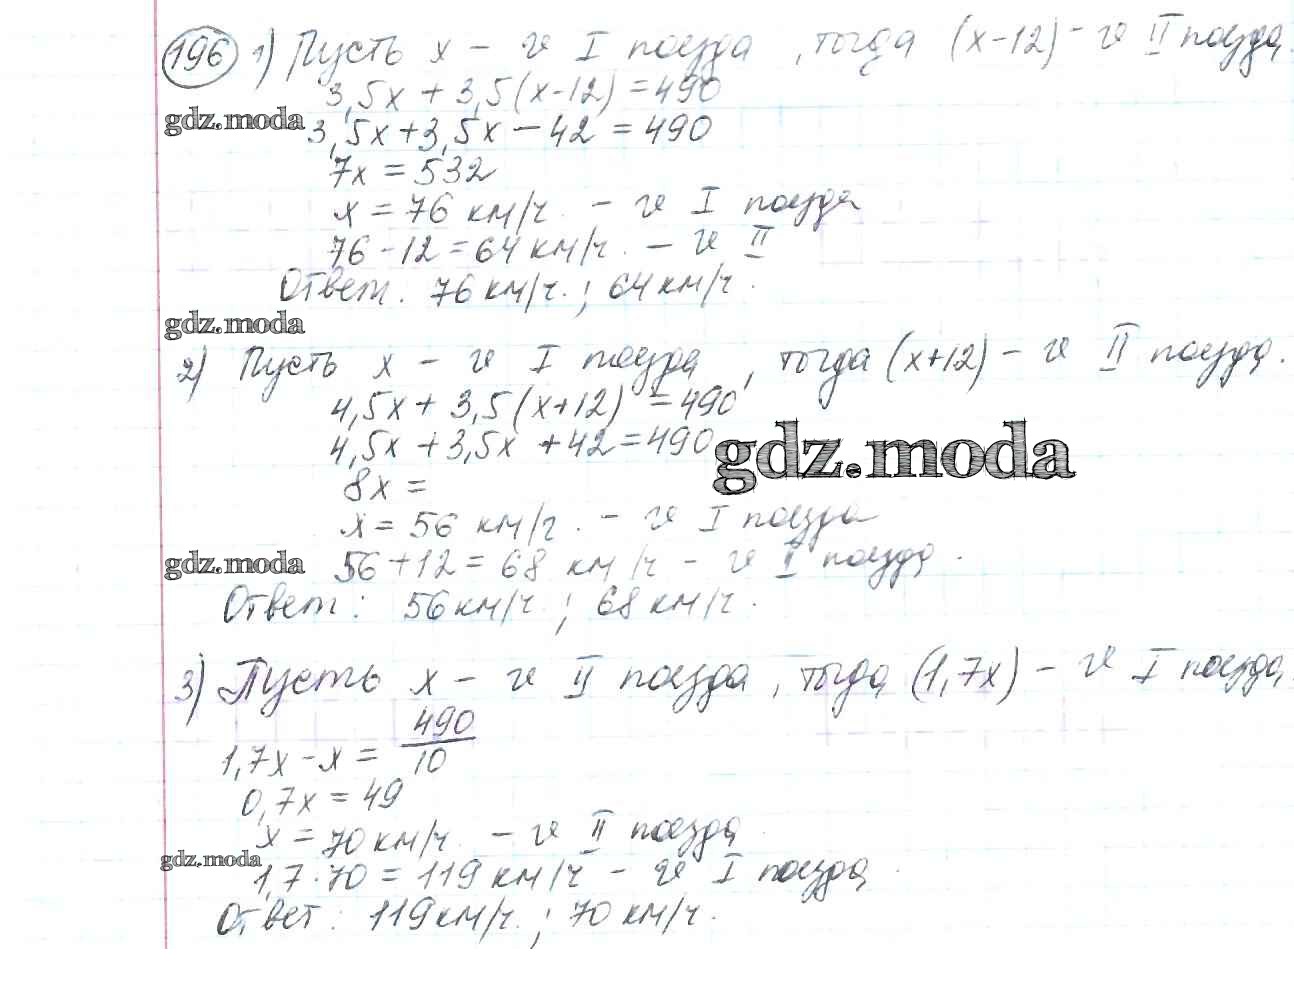 196 1) Пусть x – v I поезда, тогда (x-12) – v II поезда
3,5x + 3,5(x-12) = 490
gdz.moda
3,5x + 3,5x – 42 = 490
7x = 532
x = 76 км/ч. – v I поезда
76 - 12 = 64 км/ч. – v II
Ответ: 76 км/ч.; 64 км/ч.
gdz.moda
2) Пусть x – v I поезда, тогда (x+12) – v II поезда.
4,5x + 3,5(x+12) = 490
4,5x + 3,5x + 42 = 490
gdz.moda
8x =
x = 56 км/ч. – v I поезда
gdz.moda
56 + 12 = 68 км/ч – v I поезда.
Ответ: 56 км/ч.; 68 км/ч.
3) Пусть x – v II поезда, тогда (1,7x) – v I поезда.
1,7x - x = 490/10
0,7x = 49
x = 70 км/ч. – v II поезда
gdz.moda
1,7 · 70 = 119 км/ч – v I поезда.
Ответ: 119 км/ч.; 70 км/ч.